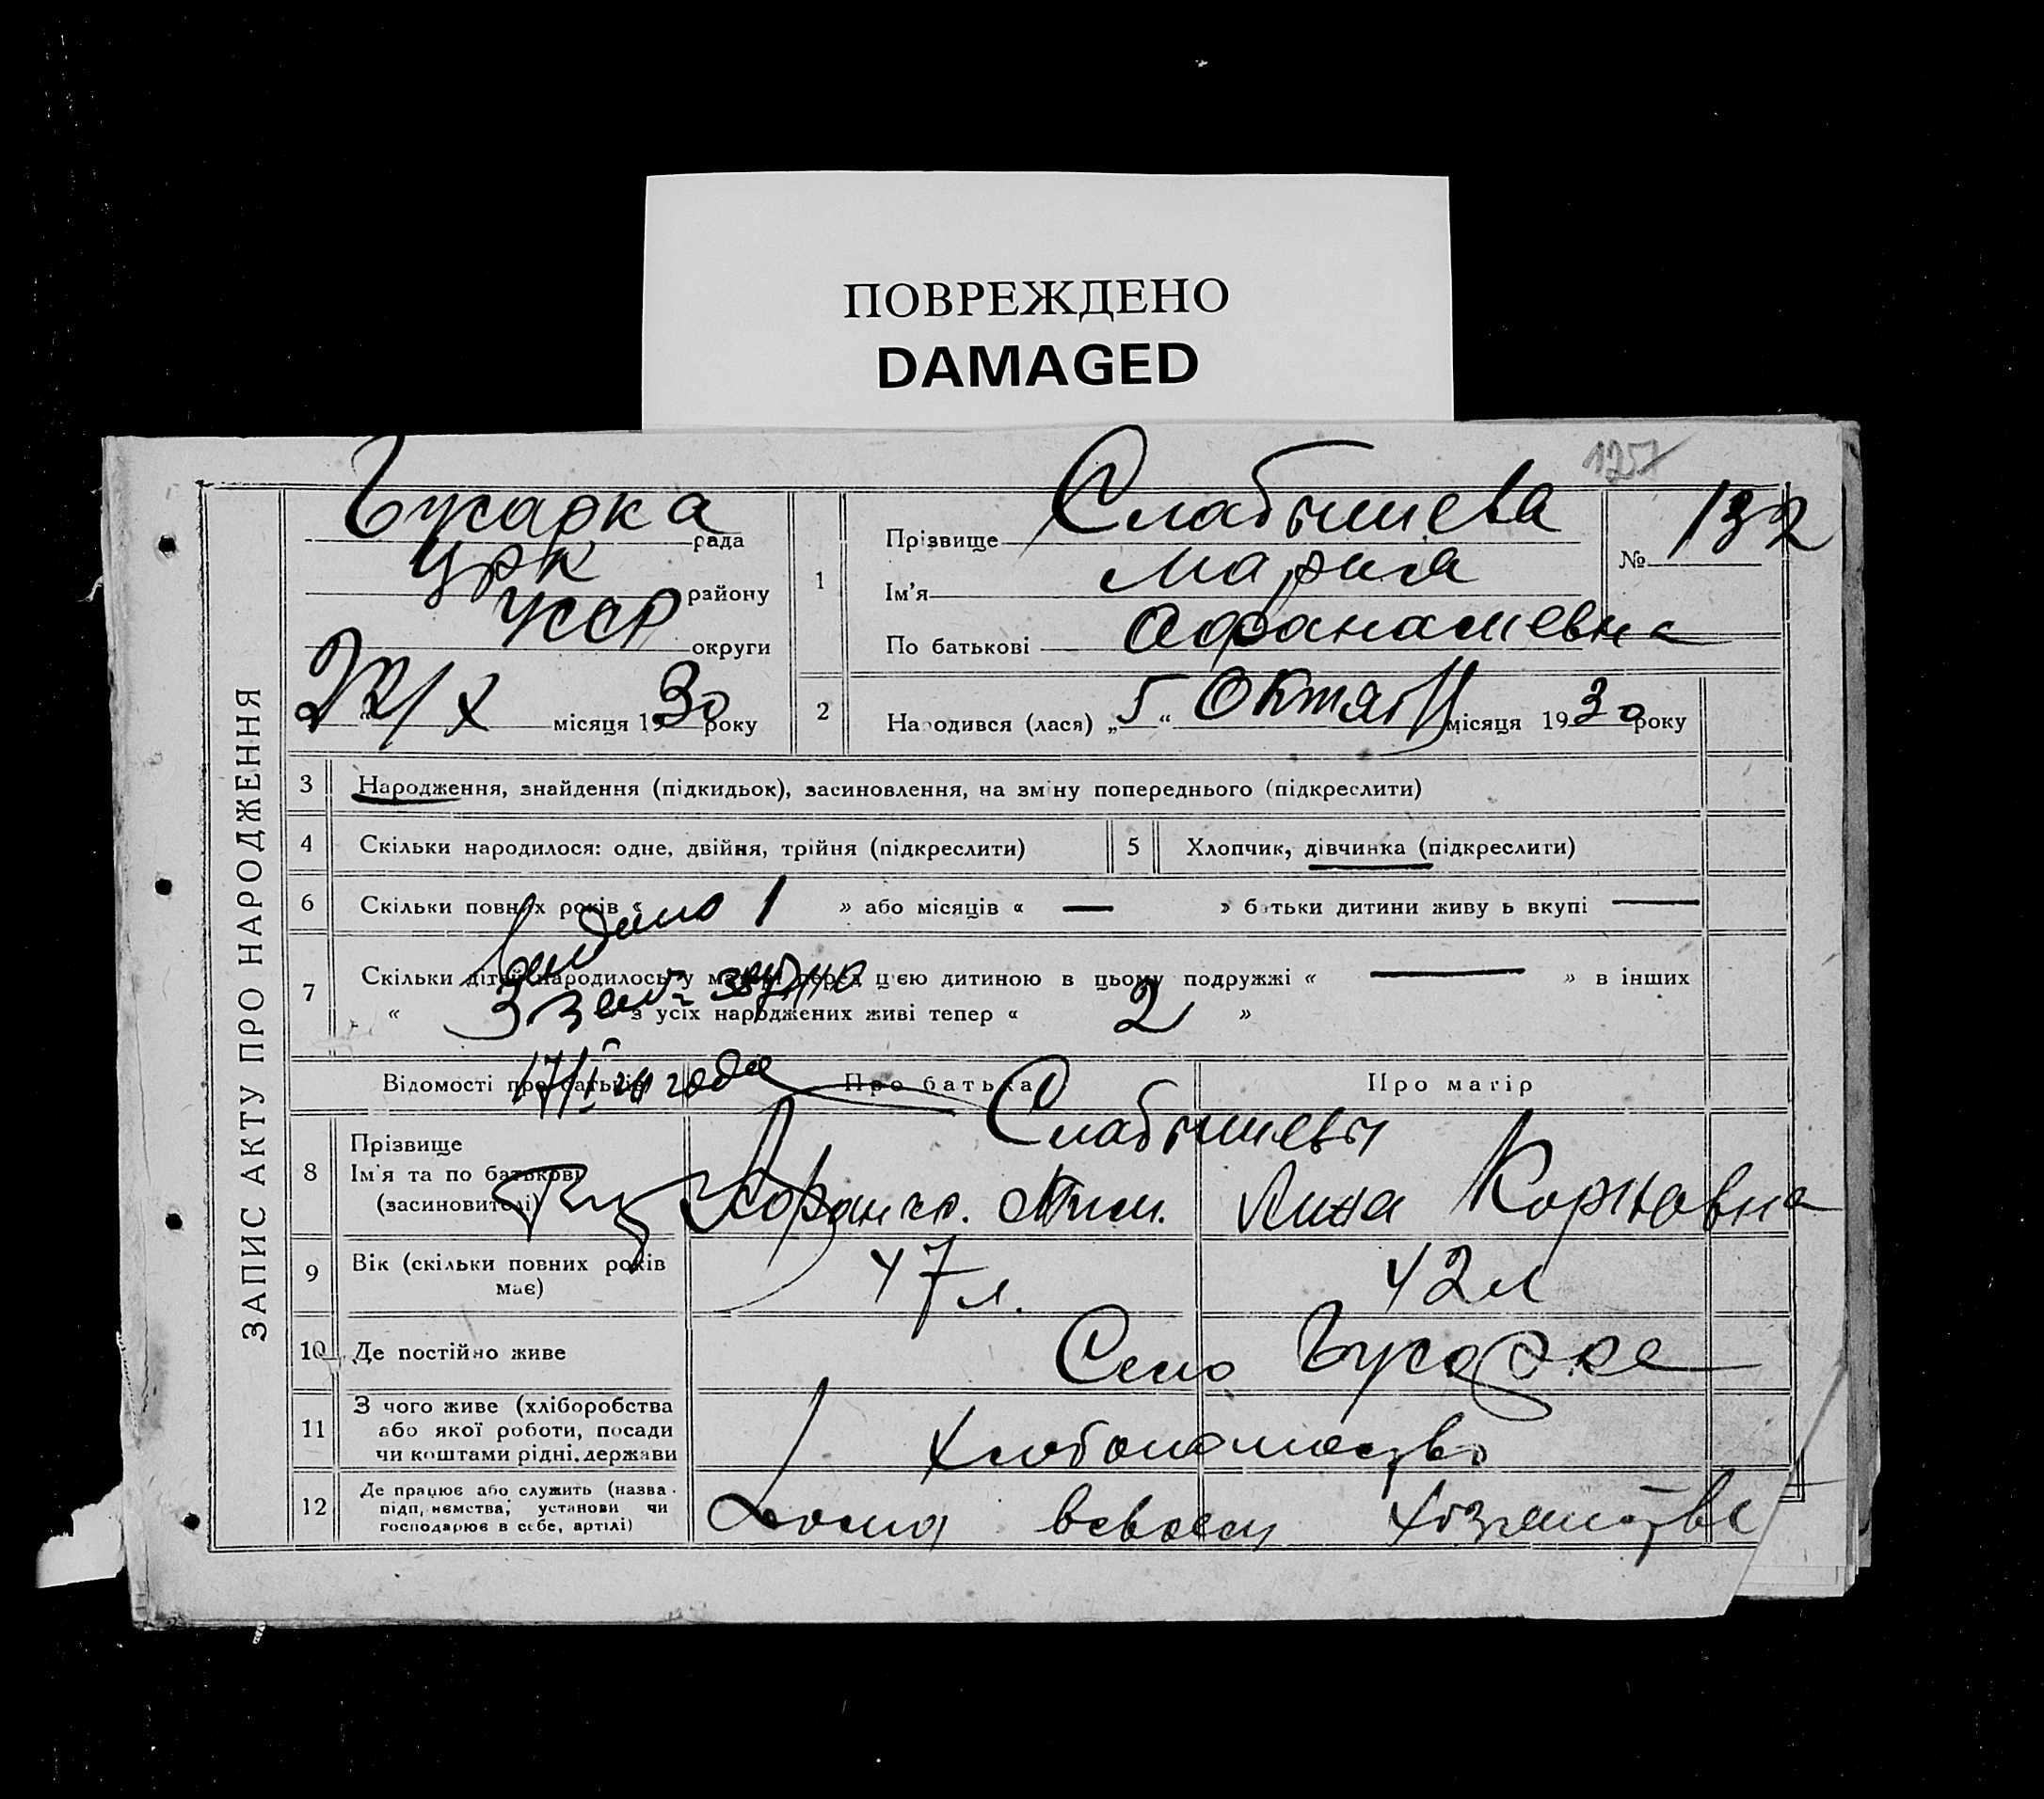 ПОВРЕЖДЕНО
DAMAGED
125
ЗАПИС АКТУ ПРО НАРОДЖЕННЯ
рада
району
УССР округи
22/X місяця 1930 року
1
Прізвище Слабышева
Ім'я Мария
По батькові Афанасиевна
№ 132
2 Народився (лася) „5“ Октяб місяця 1930 року
3 Народження, знайдення (підкидьок), засиновлення, на зміну попереднього (підкреслити)
4 Скільки народилося: одне, двійня, трійня (підкреслити) 5 Хлопчик, дівчинка (підкреслити)
6 Скільки повних років « 1 » або місяців « — » батьки дитини живуть вкупі —
7 Скільки дітей народилось у матері перед цією дитиною в цьому подружжі « — » в інших
« 3 з усіх народжених живі тепер « 2 »
года
Відомості про батьків Про батька Про матір
8 Прізвище
Ім'я та по батькові
(засиновителі)
Слабышевы
Корнеевна
9 Вік (скільки повних років
має) 47 л. 42 л
10 Де постійно живе Село
11 З чого живе (хліборобства
або якої роботи, посади
чи коштами рідні, держави
Хлебопашество
12 Де працює або служить (назва
підприємства, установи чи
господарює в себе, артілі)
Дома в своем хозяйстве